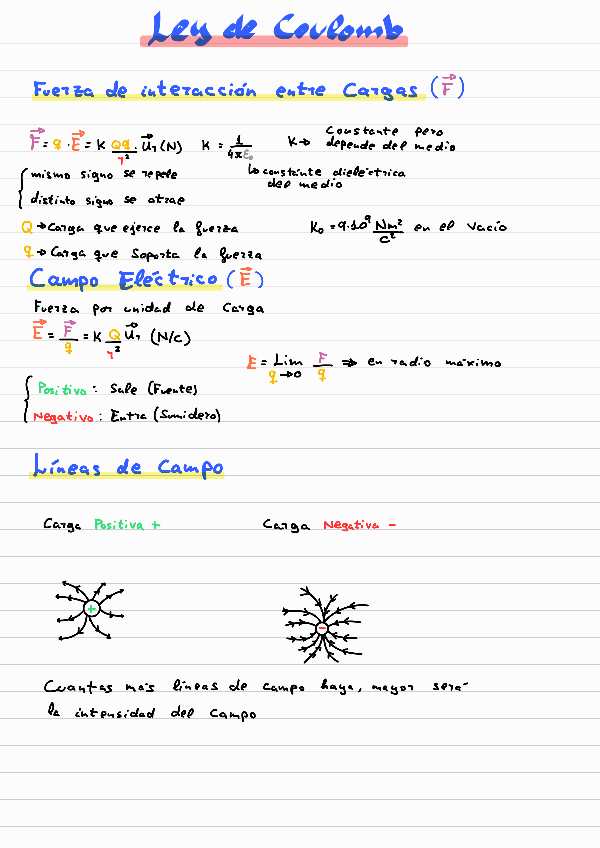 Ley de Coulomb
Fuerza de interacción entre Cargas (F⃗)
F⃗ = q · E⃗ = K Qq/r² · U⃗r (N)   K = 1/4πε₀   K → Constante pero depende del medio
mismo signo se repele   ↳ constante dieléctrica del medio
distinto signo se atrae
Q → Carga que ejerce la fuerza   K₀ = 9·10⁹ Nm²/C² en el vacío
q → Carga que soporta la fuerza
Campo Eléctrico (E⃗)
Fuerza por unidad de carga
E⃗ = F⃗/q = K Q/r² U⃗r (N/C)
E = Lim q→0 F/q ⇒ en radio máximo
Positivo: Sale (Fuente)
Negativo: Entra (Sumidero)
Líneas de Campo
Carga Positiva +   Carga Negativa -
+   -
Cuantas más líneas de campo haya, mayor será
la intensidad del campo